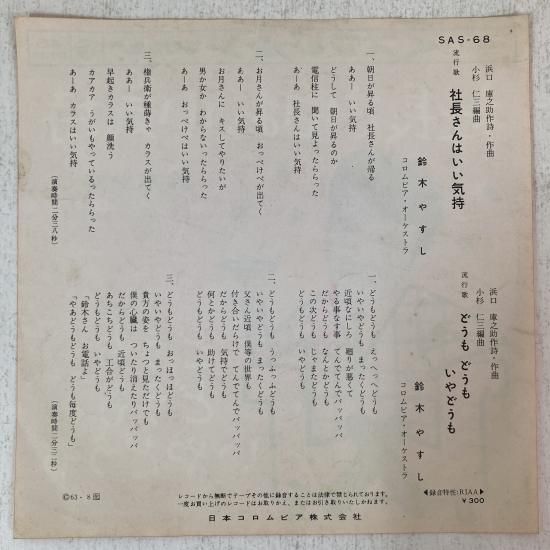 SAS-68
浜口 庫之助作詩・作曲
小杉 仁三編曲
流行歌
社長さんはいい気持
鈴木やすし
コロムビア・オーケストラ
一、朝日が昇る頃 社長さんが帰る
ああー いい気持
どうして 朝日が昇るのか
電信柱に 聞いて見よったららった
あーあ 社長さんはいい気持
二、お月さんが昇る頃 おっぺけぺが出てく
ああー いい気持
お月さんに キスしてやりたいが
男か女か わからないったららった
あーあ おっぺけぺはいい気持
三、権兵衛が種蒔きゃ カラスが出てく
ああー いい気持
早起きカラスは 顔洗う
カアカア うがいもやっているったららった
あーあ カラスはいい気持
(演奏時間二分三八秒)
浜口 庫之助作詩・作曲
小杉 仁三編曲
流行歌
どうも どうも
いやどうも
鈴木やすし
コロムビア・オーケストラ
一、どうもどうも えっへっへどうも
いやいやどうも まったくどうも
近頃なにしろ 廻りが悪くて
やる事なす事 てんでてんでパッパッパ
だからどうも なんとかどうも
この次どうも じゃまたどうも
どうもどうも いやどうも
二、どうもどうも うっふっふどうも
いやいやどうも まったくどうも
父さん近頃 僕等の世界も
付き合いだらけで てんでてんでパッパッパ
だからどうも 気持でどうも
何とかどうも 助けてどうも
どうもどうも いやどうも
三、どうもどうも おっほっほどうも
いやいやどうも まったくどうも
貴方の姿を ちょっと見ただけでも
僕の心臓は ついたり消えたりパッパッパ
だからどうも 近頃どうも
あちこちどうも 工合がどうも
どうもどうも いやどうも
「鈴木さん お電話よ」
「やあどうもどうも どうも毎度どうも」
(演奏時間二分三二秒)
Ⓒ63・8
レコードから無断でテープその他に録音することは法律で禁じられております。
一度お買い上げのレコードはお取りかえ、またはお引き取りいたしかねます。
日本コロムビア株式会社
◀録音特性:RIAA▶
¥300